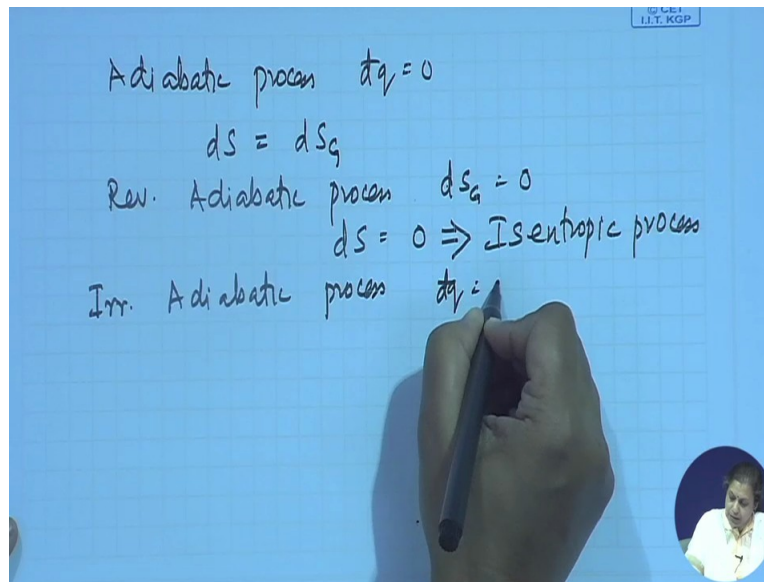 © CET
I.I.T. KGP
Adiabatic process đq = 0
dS = dSG
Rev. Adiabatic process dSG = 0
dS = 0 ⇒ Isentropic process
Irr. Adiabatic process đq =